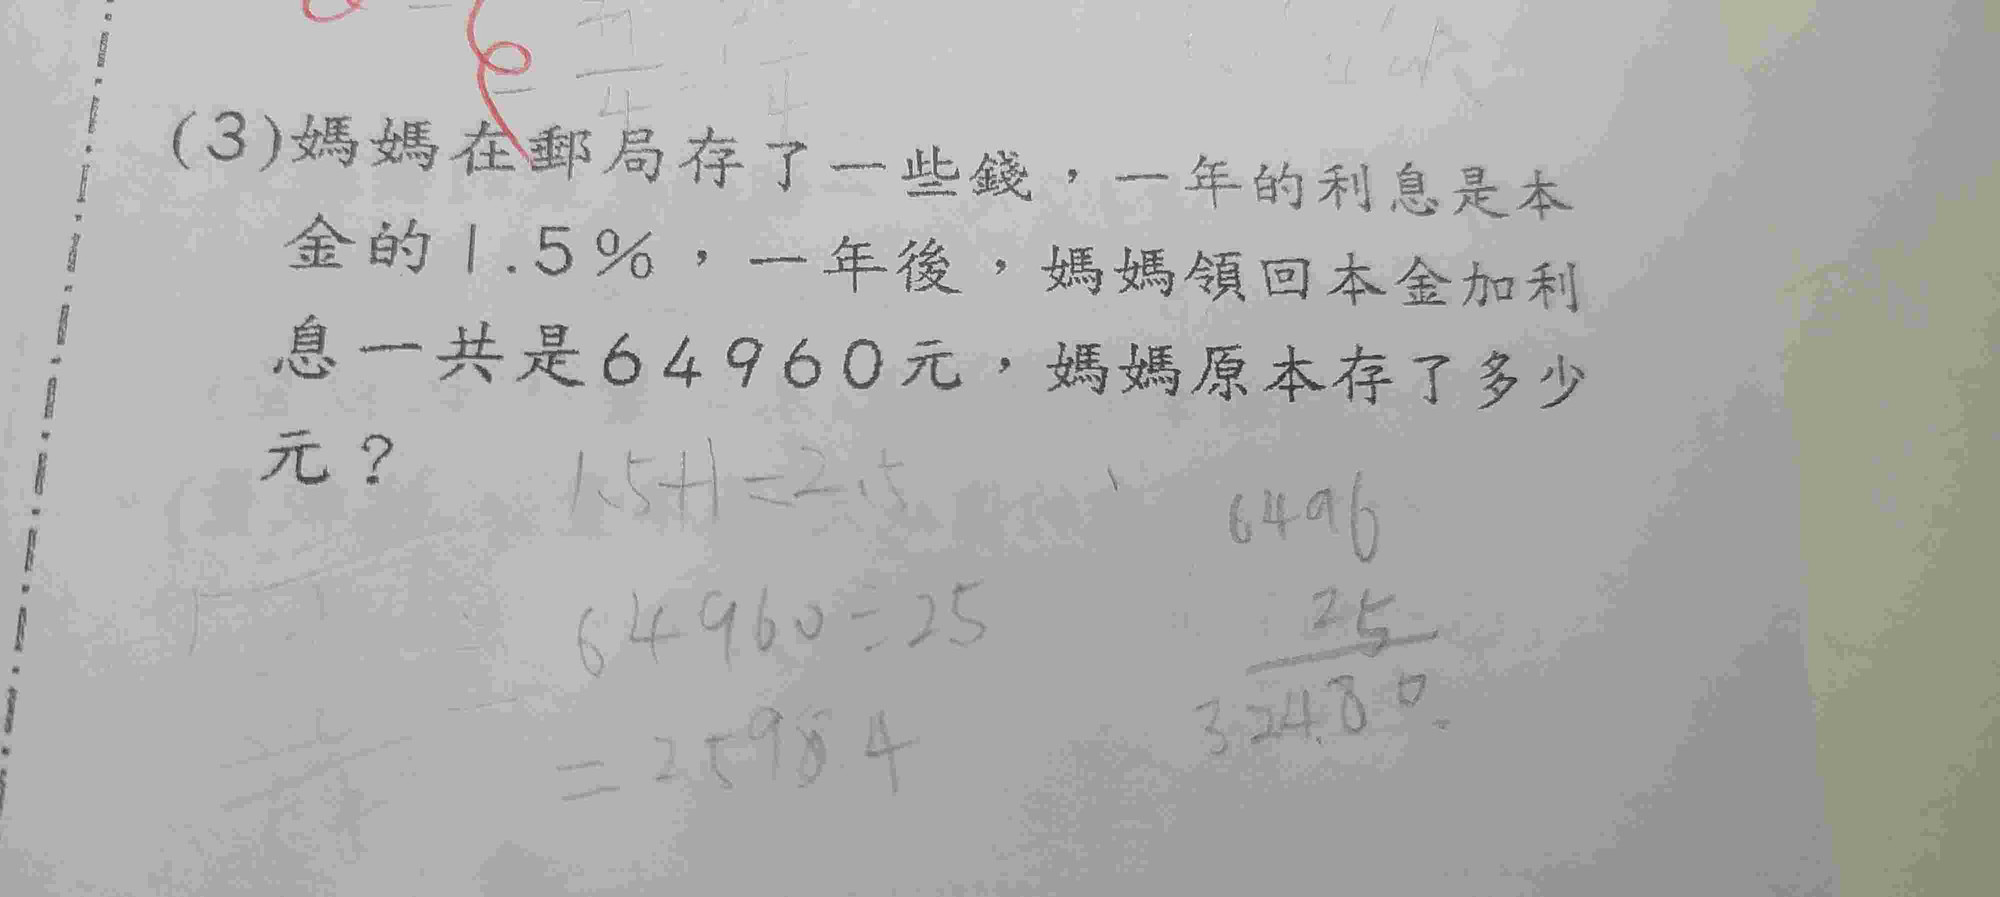 (3)媽媽在郵局存了一些錢，一年的利息是本
金的1.5%，一年後，媽媽領回本金加利
息一共是64960元，媽媽原本存了多少
元？
1.5+1=2.5
64960÷25
=25984
6496
25
32480